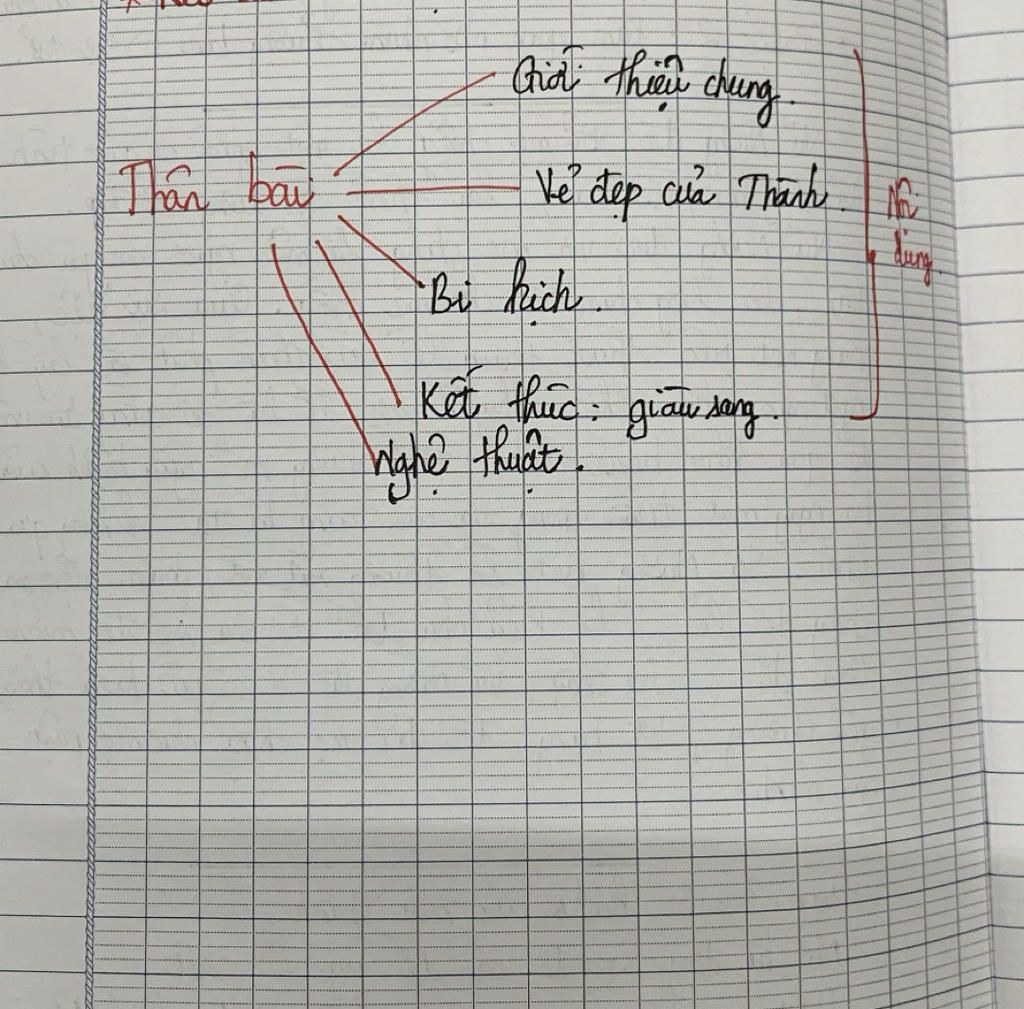 Giới thiệu chung.
Thân bài
Vẻ đẹp của Thành.
Nội
dung.
Bi kịch.
Kết thúc: giàu sang.
Nghệ thuật.